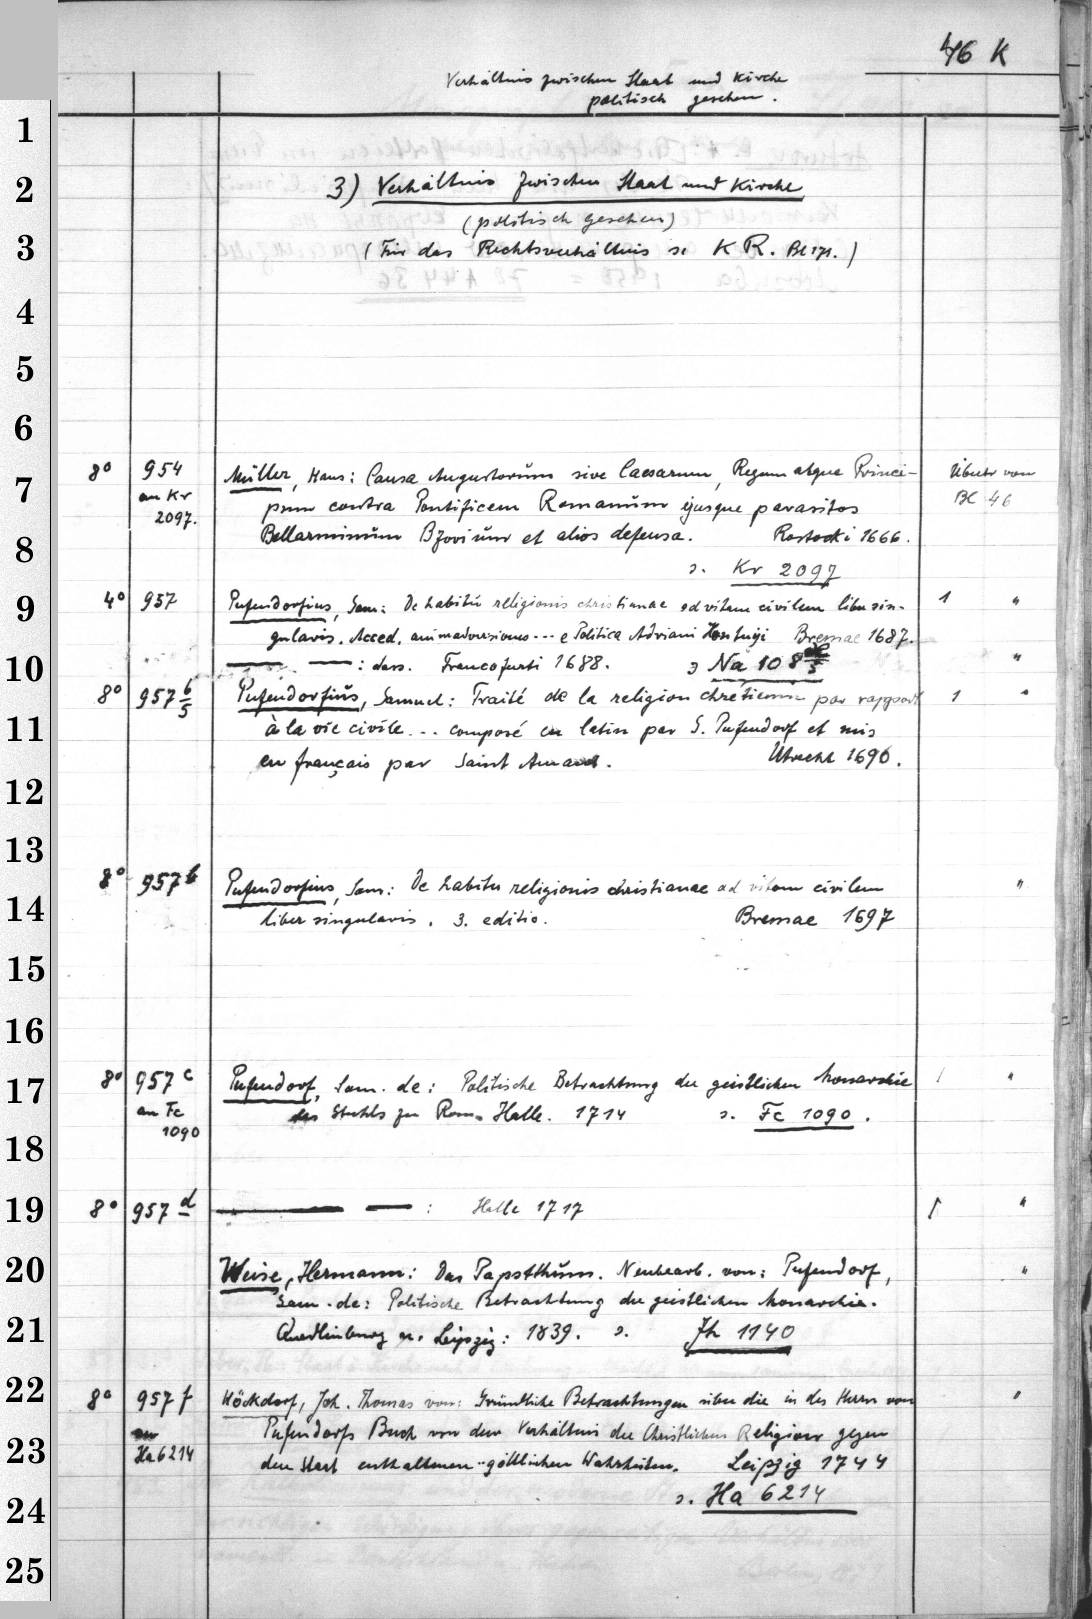 46 K
Verhältnis zwischen Staat und Kirche
politisch gesehen.
1
2 3) Verhältnis zwischen Staat und Kirche
(politisch gesehen)
3 (Für das Rechtsverhältnis s. KR. Bl 171.)
4
5
6
8° 954 Müller, Hans: Causa Augustorum sive Caesarum, Regum atque Princi-
7 an Kr 2097. pum contra Pontificem Romanum ejusque parasitos
8 Bellarminum Bzovium et alios defensa. Rostocki 1666.
s. Kr 2097
9 4° 957 Pufendorfius, Sam: De habitu religionis christianae ad vitam civilem liber sin- 1 "
gularis. Acced. animadversiones --- e Politica Adriani Houtuyi Bremae 1687.
10 — — : dass. Francofurti 1688. s Na 108 "
8° 957 b/5 Pufendorfius, Samuel: Traité de la religion chrétienne par rapport 1 "
11 à la vie civile... composé en latin par S. Pufendorf et mis
en français par Saint Amand. Utrecht 1690.
12
13
8° 957 b Pufendorfius, Sam: De habitu religionis christianae ad vitam civilem "
14 liber singularis. 3. editio. Bremae 1697
15
16
17 8° 957 c Pufendorf, Sam. de: Politische Betrachtung der geistlichen Monarchie 1 "
an Fc 1090 des Stuhls zu Rom. Halle. 1714 s. Fc 1090.
18
19 8° 957 d — — : Halle 1717 1 "
20 Weise, Hermann: Das Papstthum. Neubearb. von: Pufendorf, "
Sam. de: Politische Betrachtung der geistlichen Monarchie.
21 Quedlinburg u. Leipzig: 1839. s. Jh 1140
22 8° 957 f Höckdorf, Joh. Thomas von: Gründliche Betrachtungen über die in des Herrn von "
Pufendorfs Buch von dem Verhältnis der Christlichen Religion gegen
23 Ha 6214 den Staat enthaltenen göttlichen Wahrheiten. Leipzig 1744
24 s. Ha 6214
25
Übertr von
BC 46